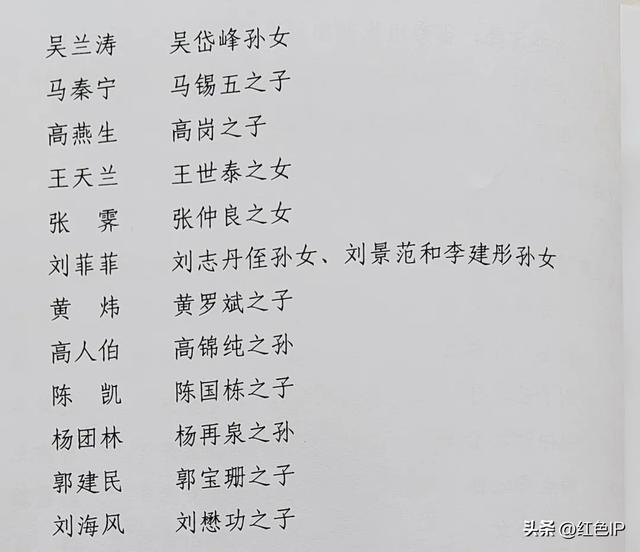 吴兰涛 吴岱峰孙女
马秦宁 马锡五之子
高燕生 高岗之子
王天兰 王世泰之女
张 霁 张仲良之女
刘菲菲 刘志丹侄孙女、刘景范和李建彤孙女
黄 炜 黄罗斌之子
高人伯 高锦纯之孙
陈 凯 陈国栋之子
杨团林 杨再泉之孙
郭建民 郭宝珊之子
刘海风 刘懋功之子
头条 @红色IP